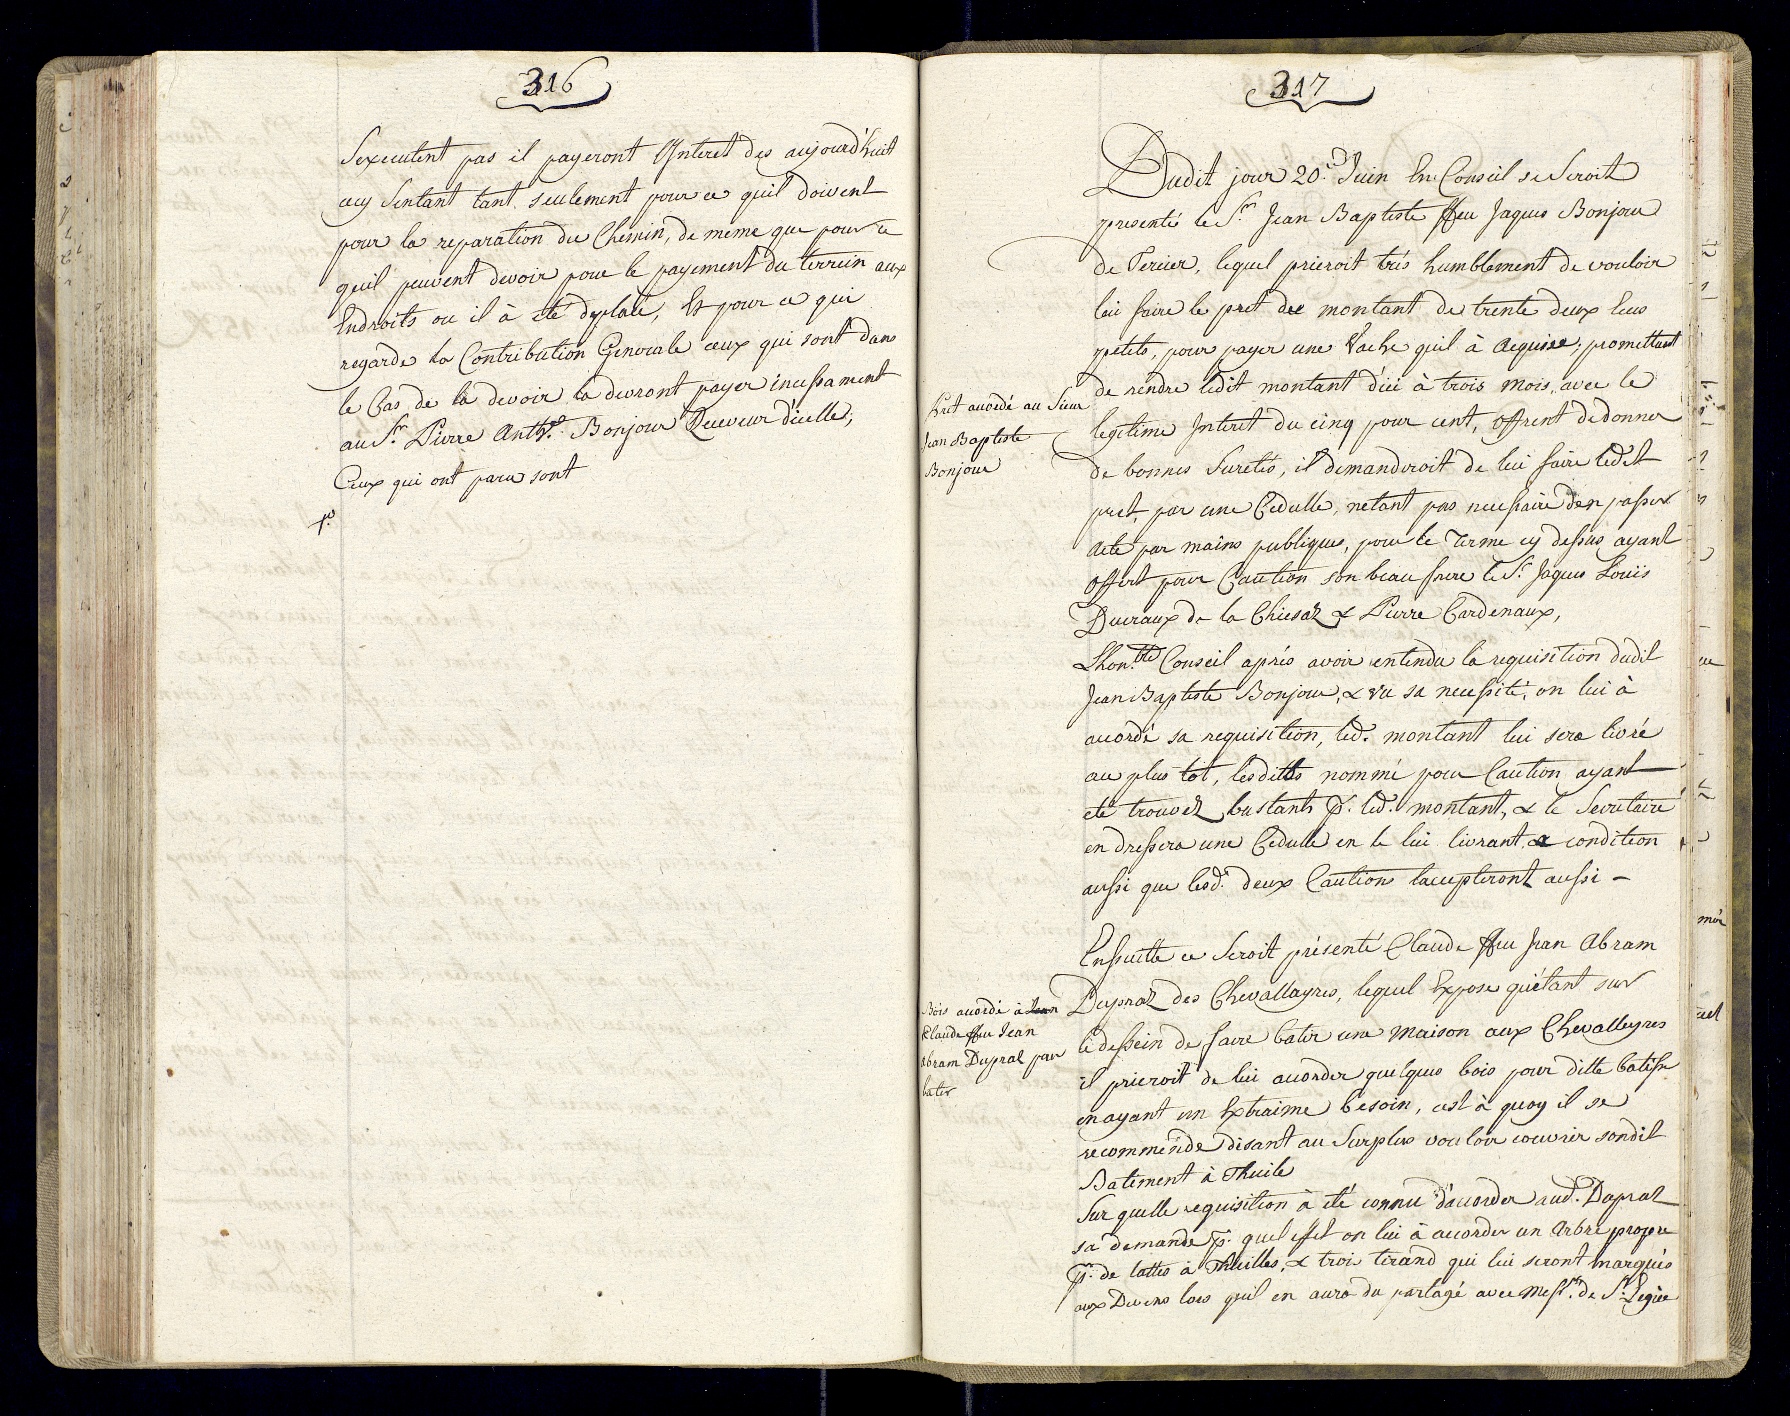 316
Sexecutent pas il payeront Interet des aujourd'huit
icy Sentant tant seulement pour ce quil doivent
pour la reparation du Chemin, de meme que pour ce
quil peuvent devoir pour le payement du terrein aux
Endroits ou il à eté deplacé, Et pour ce qui
regarde la Contribution Generale ceux qui sont dans
le Cas de la devoir la devront payer incessament
au Sr. Pierre Anthe. Bonjour Receveur d'icelle;
Ceux qui ont paru sont
1o.
317
Dudit jour 20e. Juin En Conseil se Seroit
presenté le Sr. Jean Baptiste ffeu Jaques Bonjour
de Tercier, lequel prieroit trés humblement de vouloir
lui faire le pret du montant de trente deux Ecus
petits, pour payer une Vache quil à acquise; promettant
de rendre ledit montant d'ici à trois mois, avec le
legitime Interet du cinq pour cent, offrent de donner
de bonnes Suretés, il demanderoit de lui faire ledit
pret, par une Cedulle, netant pas necessaire den passer
Acte par mains publiques, pour le Terme cy dessus ayant
offert pour Caution son beau frere le Sr. Jaques Louis
Ducraux de la Chiesaz & Pierre Cardenaux,
Lhonble. Conseil aprés avoir entendu la requisition dudit
Jean Baptiste Bonjour, & vu sa necessité, on lui à
acordé sa requisition, led. montant lui sera livré
au plus tot, lesditts nommé pour Caution ayant
eté trouvez bastants p. led. montant, & le Secretaire
en dressera une Cedulle en le lui livrant, a condition
aussi que lesd. deux Cautions l'accepteront aussi –
Pret acordé au Sieur
Jean Baptiste
Bonjour
Ensuitte ce Seroit présenté Claude ffeu Jean Abram
Dupraz des Chevallayres, lequel Expose qu'etant sur
le dessein de faire batir une maison aux Chevalleyres
il prieroit de lui acorder quelques bois pour ditte batisse
en ayant un Extraime besoin, cest à quoy il se
recommende disant au Surplus vouloir couvrir sondit
Batiment à Thuile
Sur quelle requisition à eté connu d'acorder aud. Dupraz
sa demande p. quel effet on lui à acorder un Arbre propre
p. de lattes à Thuilles, & trois tirand qui lui seront marqués
aux Devens lors quil en aura du partagé avec Messrs. de St. Legier
Bois acordé à Jean
Claude ffeu Jean
Abram Dupraz pour
batir